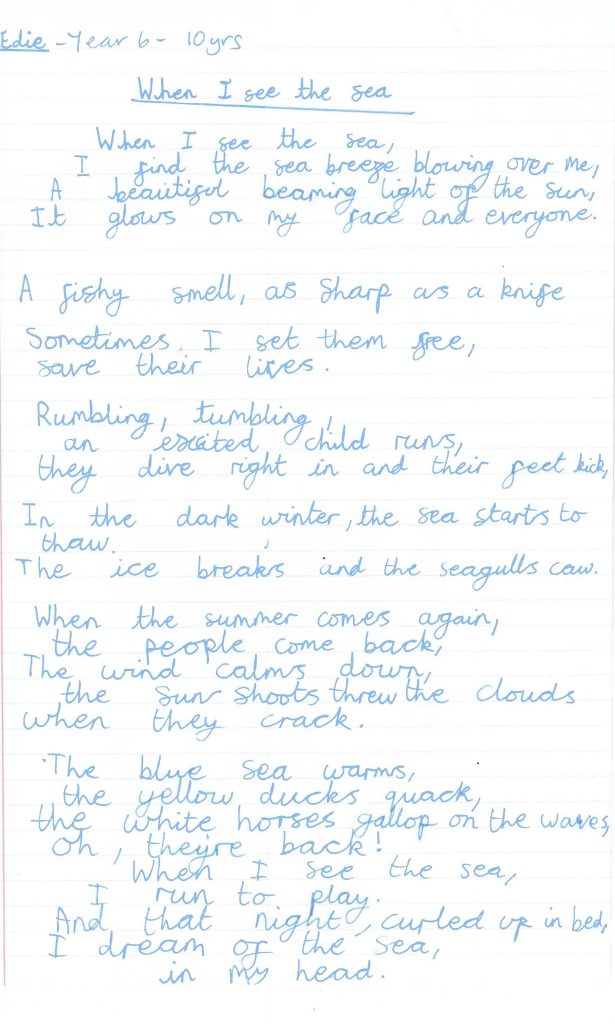 Edie - Year 6 - 10yrs
When I see the sea
When I see the sea,
I find the sea breeze blowing over me,
A beautiful beaming light of the sun,
It glows on my face and everyone.
A fishy smell, as sharp as a knife
Sometimes I set them free,
save their lives.
Rumbling, tumbling,
an excited child runs,
they dive right in and their feet kick,
In the dark winter, the sea starts to
thaw.
The ice breaks and the seagulls caw.
When the summer comes again,
the people come back,
The wind calms down,
the sun shoots threw the clouds
when they crack.
The blue sea warms,
the yellow ducks quack,
the white horses gallop on the waves,
Oh, they're back!
When I see the sea,
I run to play.
And that night, curled up in bed,
I dream of the sea,
in my head.